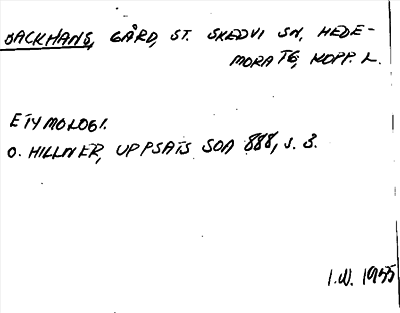 BACKHANS, GÅRD, ST. SKEDVI SN, HEDE-
MORA TG, KOPP. L.
ETYMOLOGI.
O. HILLNER, UPPSATS SOA 888, S. 3.
I.W. 1955